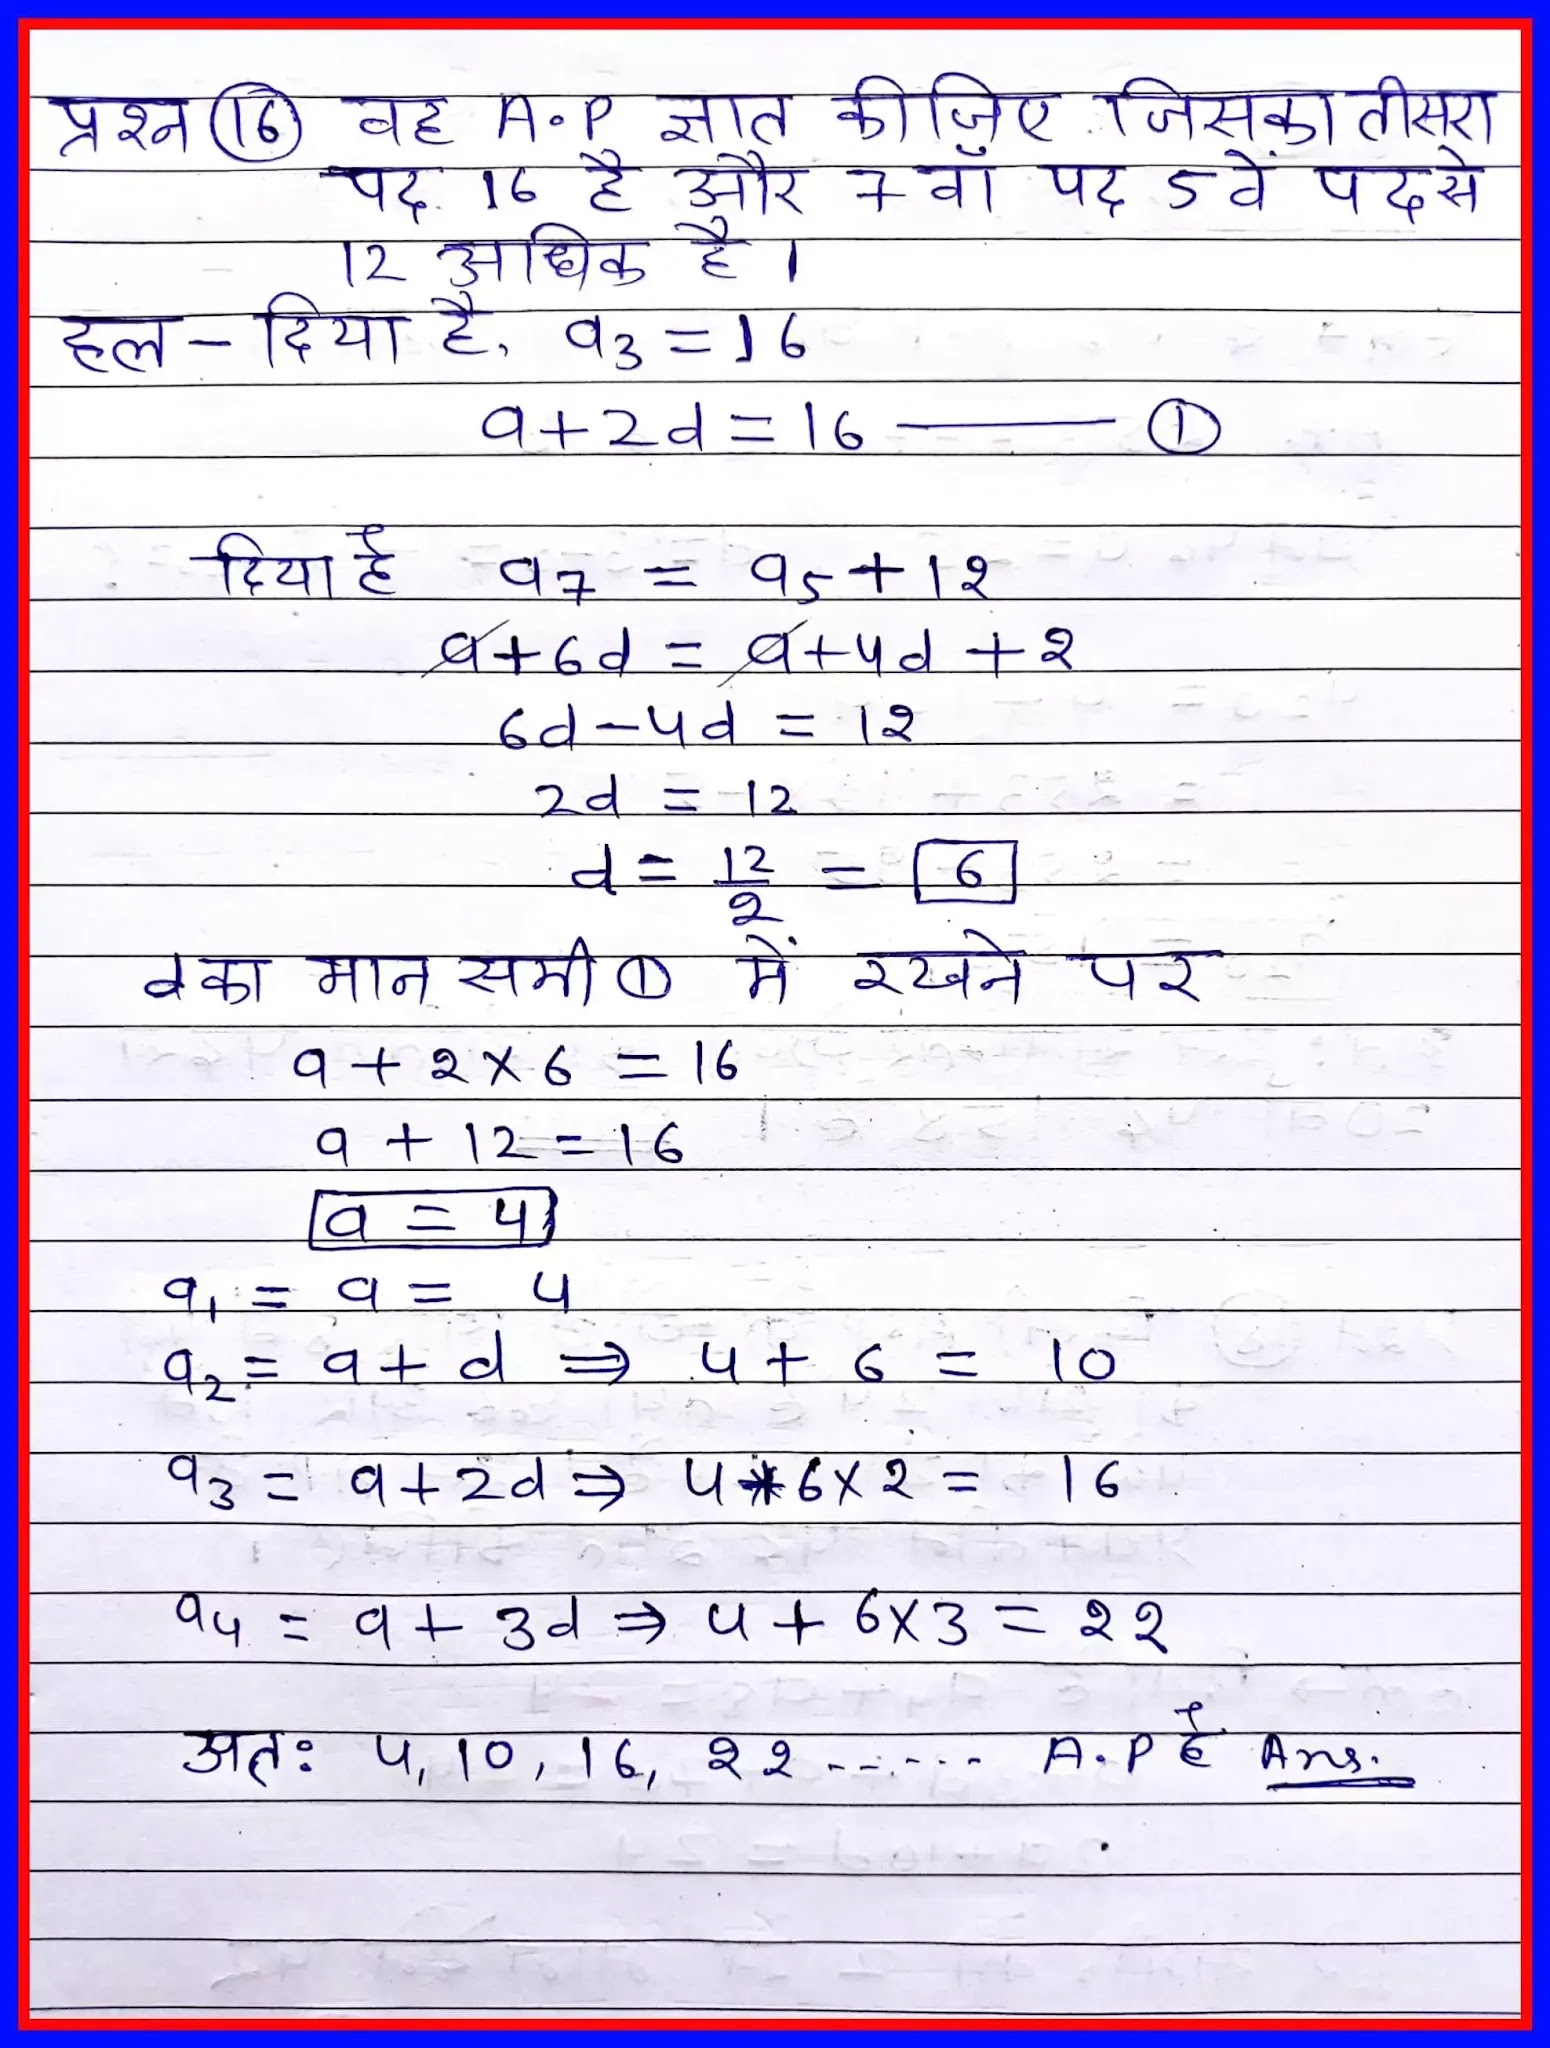 प्रश्न 16 वह A.P ज्ञात कीजिए जिसका तीसरा
पद 16 है और 7 वाँ पद 5 वें पद से
12 अधिक है।
हल - दिया है, a3 = 16
a + 2d = 16 —— ①
दिया है a7 = a5 + 12
a + 6d = a + 4d + 2
6d - 4d = 12
2d = 12
d = 12/2 = 6
d का मान समी ① में रखने पर
a + 2 × 6 = 16
a + 12 = 16
a = 4
a1 = a = 4
a2 = a + d ⇒ 4 + 6 = 10
a3 = a + 2d ⇒ 4 + 6 × 2 = 16
a4 = a + 3d ⇒ 4 + 6 × 3 = 22
अतः 4, 10, 16, 22 ...... A.P है Ans.